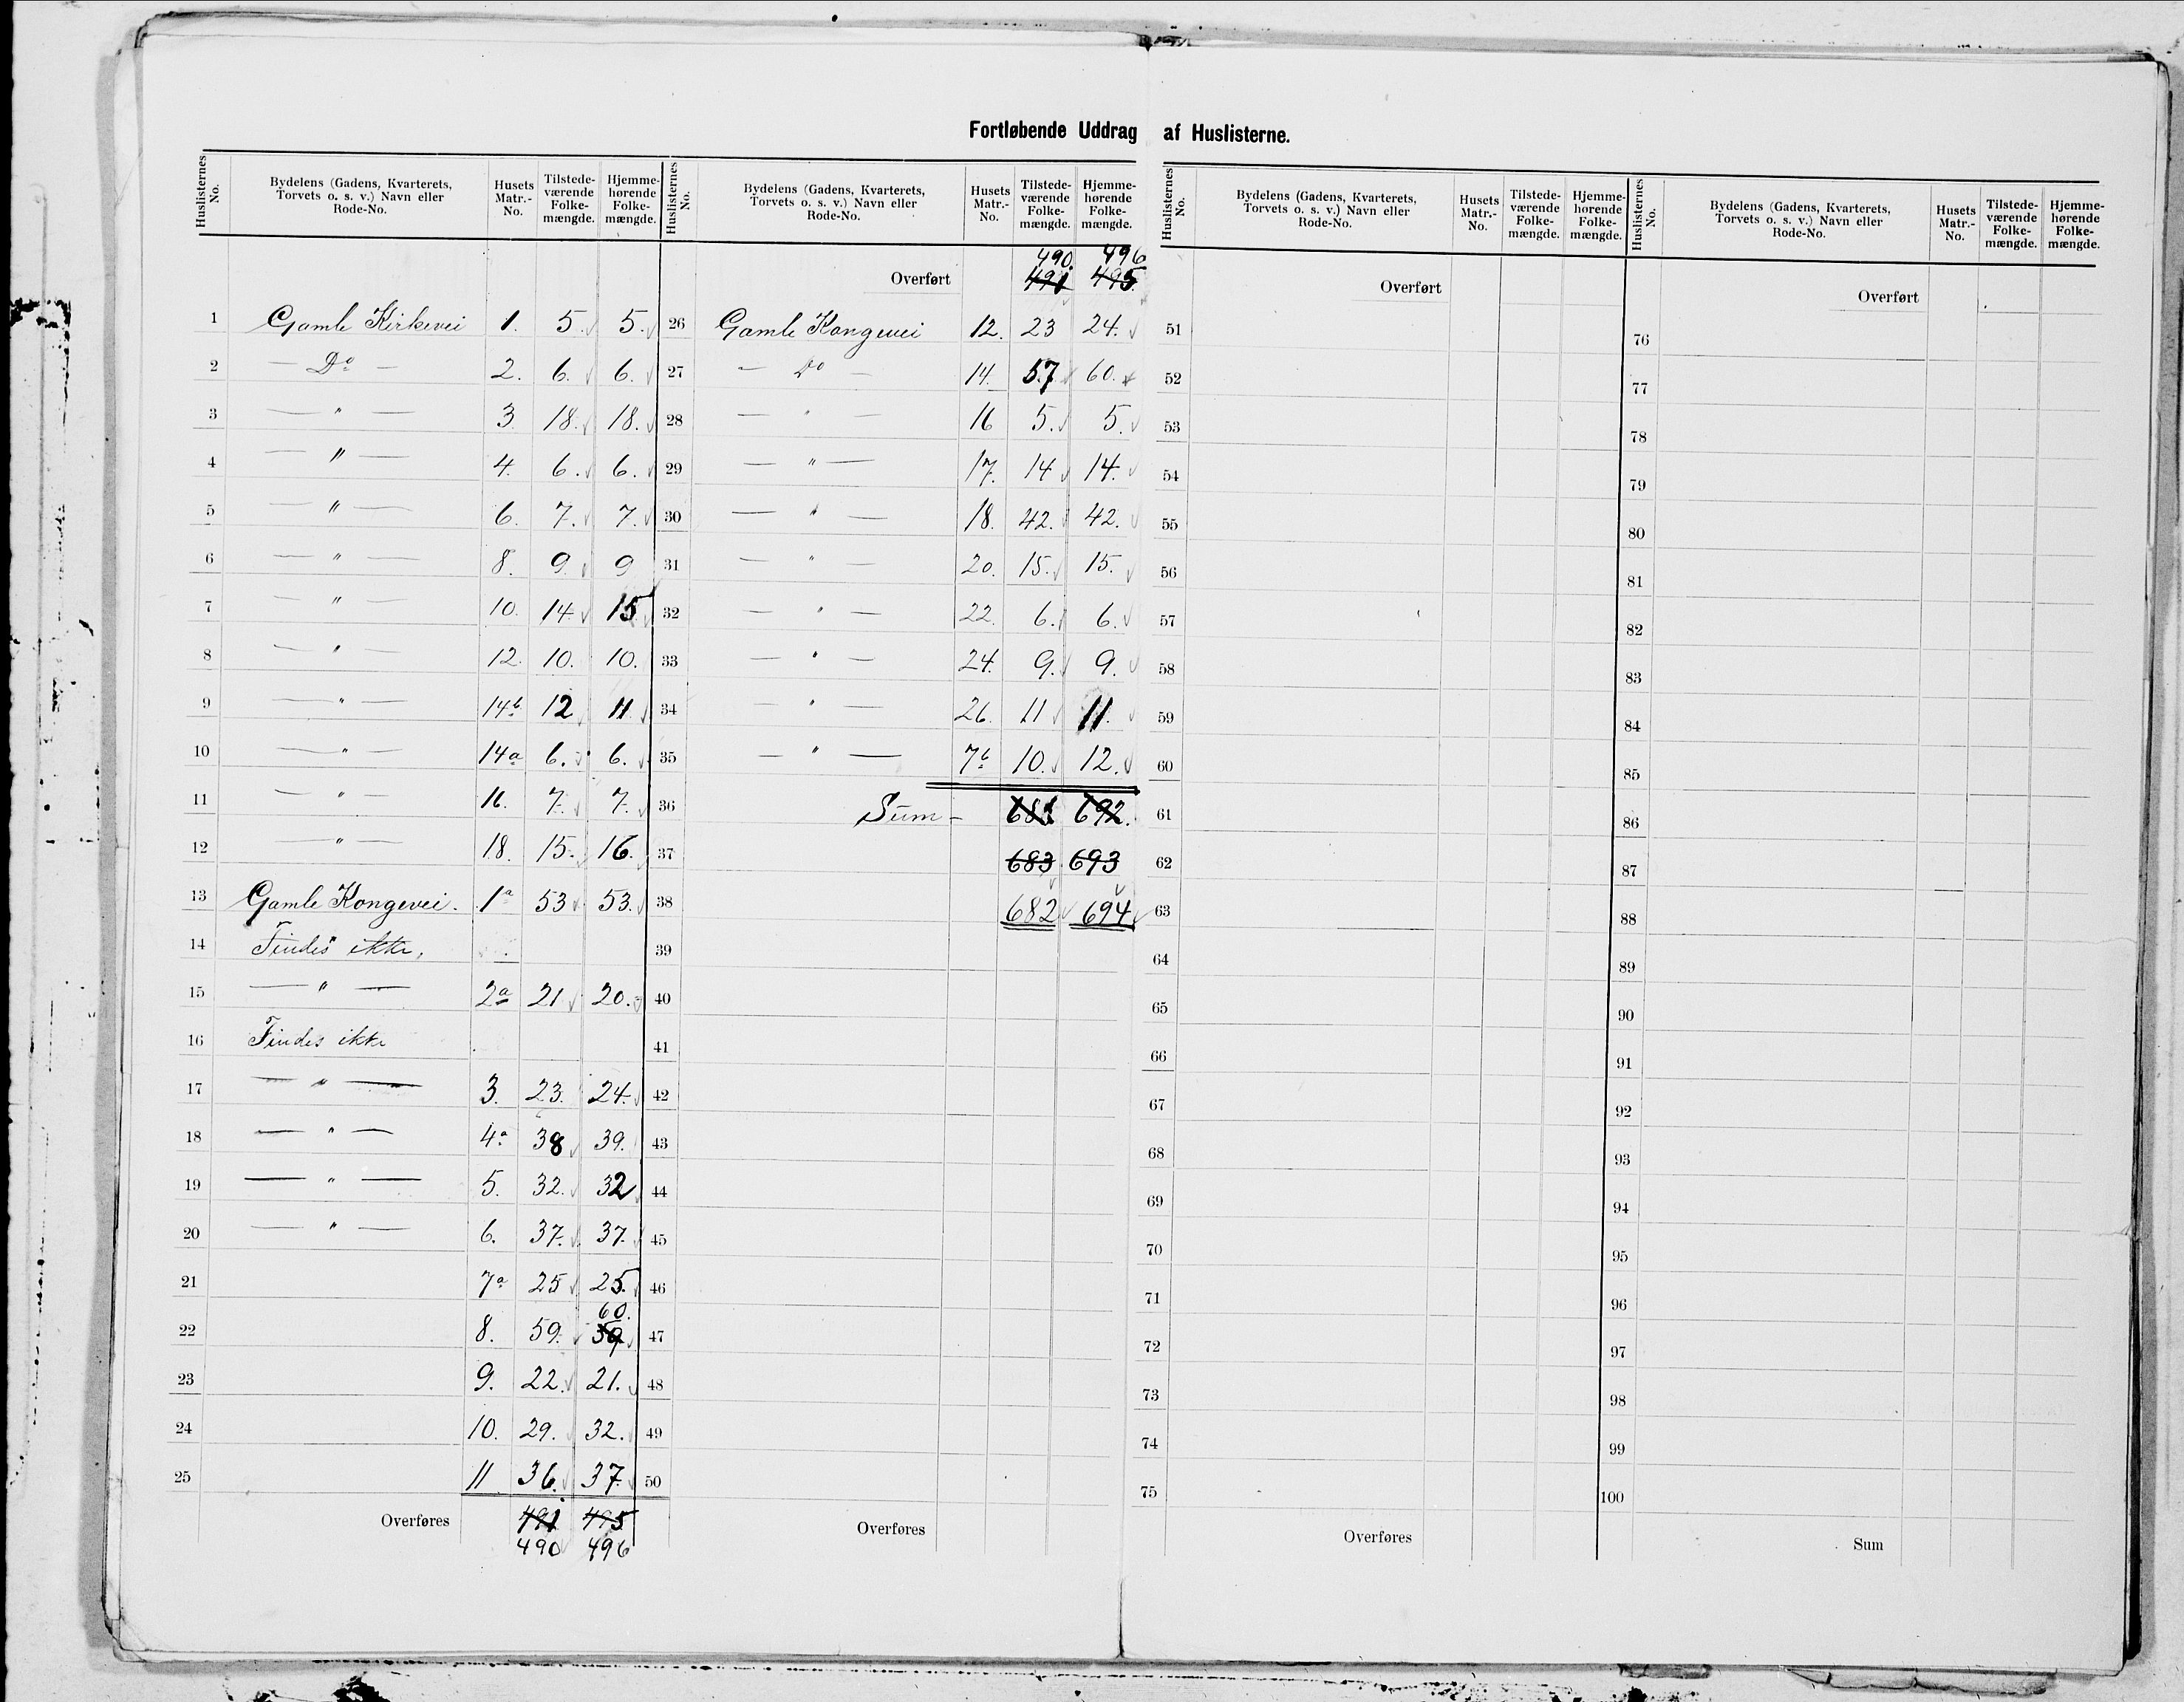 Fortløbende Uddrag af Huslisterne.
Huslisternes No. | Bydelens (Gadens, Kvarterets, Torvets o. s. v.) Navn eller Rode-No. | Husets Matr.-No. | Tilstede-værende Folke-mængde. | Hjemme-hørende Folke-mængde.
1 Gamle Kirkevei 1. 5. 5.
2 — Do — 2. 6. 6.
3 — " — 3 18. 18.
4 — " — 4. 6. 6.
5 — " — 6. 7. 7.
6 — " — 8. 9. 9
7 — " — 10. 14. 15
8 — " — 12. 10. 10.
9 — " — 14b 12 11.
10 — " — 14a 6. 6.
11 — " — 16. 7. 7.
12 — " — 18. 15. 16.
13 Gamle Kongevei. 1a 53 53.
14 Findes ikke.
15 — " — 2a 21 20.
16 Findes ikke
17 — " — 3. 23. 24.
18 — " — 4a 38 39.
19 — " — 5. 32. 32
20 — " — 6. 37. 37.
21 7a 25 25.
22 8. 59. 59 60.
23 9. 22. 21.
24 10. 29. 32.
25 11 36. 37.
Overføres 491 495
490 496
Huslisternes No. | Bydelens (Gadens, Kvarterets, Torvets o. s. v.) Navn eller Rode-No. | Husets Matr.-No. | Tilstede-værende Folke-mængde. | Hjemme-hørende Folke-mængde.
490. 496
Overført 491 495.
26 Gamle Kongevei 12. 23 24.
27 — Do — 14. 57 60.
28 — " — 16 5. 5.
29 — " — 17. 14 14.
30 — " — 18. 42. 42.
31 — " — 20. 15. 15.
32 — " — 22. 6. 6.
33 — " — 24. 9. 9.
34 — " — 26. 11 11.
35 — " — 7b 10. 12.
36 Sum — 692.
37 683 693
38 682 694
39
40
41
42
43
44
45
46
47
48
49
50
Overføres
Huslisternes No. | Bydelens (Gadens, Kvarterets, Torvets o. s. v.) Navn eller Rode-No. | Husets Matr.-No. | Tilstede-værende Folke-mængde. | Hjemme-hørende Folke-mængde.
Overført
51
52
53
54
55
56
57
58
59
60
61
62
63
64
65
66
67
68
69
70
71
72
73
74
75
Overføres
Huslisternes No. | Bydelens (Gadens, Kvarterets, Torvets o. s. v.) Navn eller Rode-No. | Husets Matr.-No. | Tilstede-værende Folke-mængde. | Hjemme-hørende Folke-mængde.
Overført
76
77
78
79
80
81
82
83
84
85
86
87
88
89
90
91
92
93
94
95
96
97
98
99
100
Sum